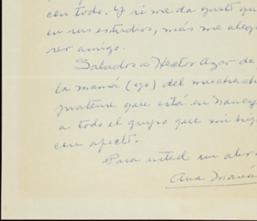 con todo. Y si me da gusto qu
en sus estudios, más me aleg
ser amigo.
Saludos a Hector Azar de
la mamá (ojo) del muchach
que está en Nancy
a todo el grupo que mi hij
con afecto.
Para usted un abra
Ana